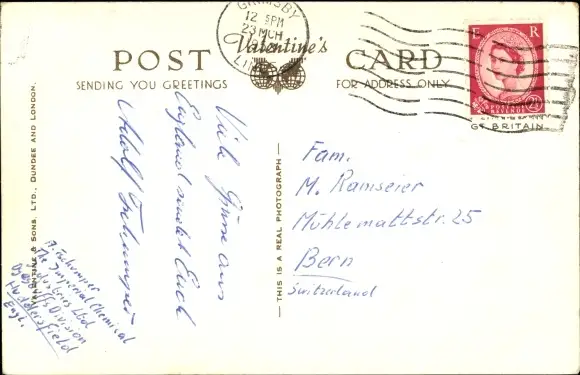 GRIMSBY
12 15PM
23 MCH
LIN
E R
POSTAGE
REVENUE
2½
POST Valentine's CARD
SENDING YOU GREETINGS
FOR ADDRESS ONLY
GT BRITAIN
VALENTINE & SONS, LTD., DUNDEE AND LONDON.
THIS IS A REAL PHOTOGRAPH
Viele Grüsse aus
England sendet Euch
Adolf Tschumper
A. Tschumper
The Imperial Chemical
Industries Ltd
Dyestuffs Division
Huddersfield
Engl.
Fam.
M. Ramseier
Mühlemattstr. 25
Bern
Switzerland